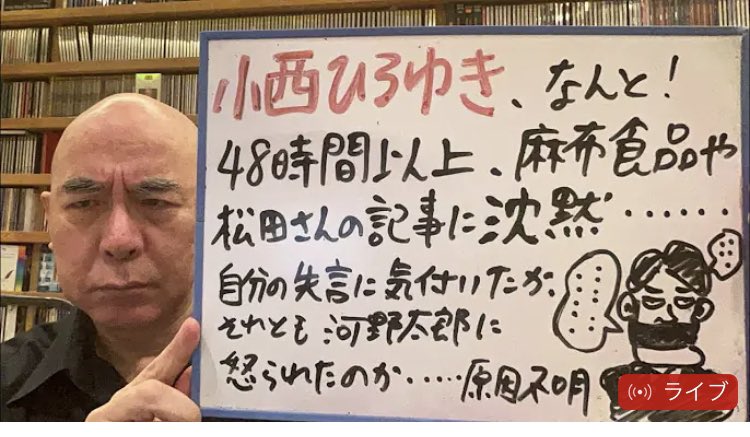 小西ひろゆき、なんと!
48時間以上、麻布食品や
松田さんの記事に沈黙……
自分の失言に気付いたか、
それとも河野太郎に
怒られたのか……原因不明
ライブ